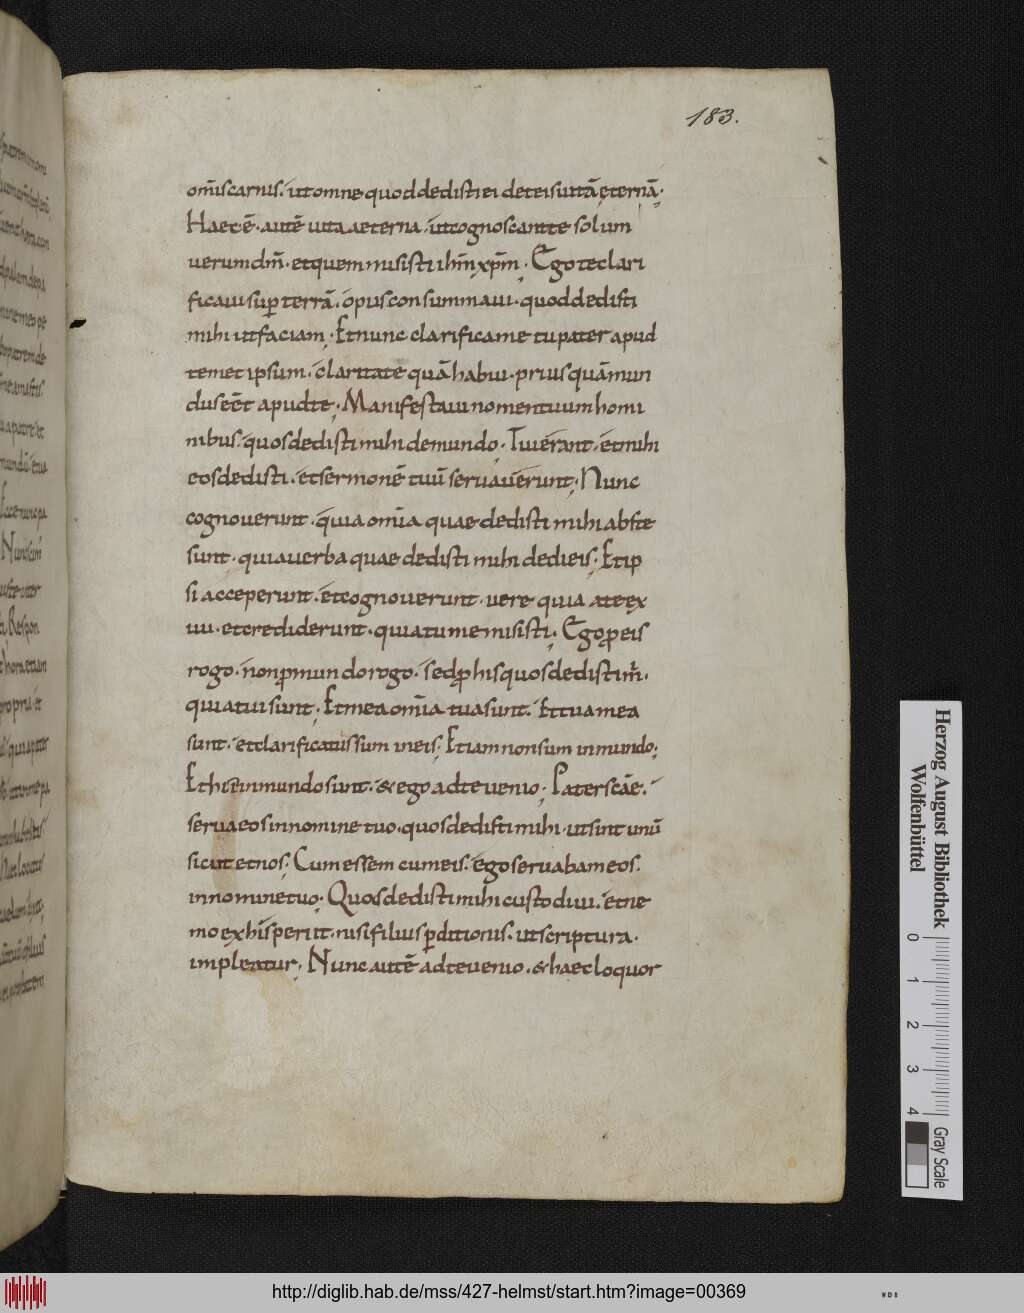 183.
om̄iscarnis. utomne quod dedisti ei det eis uitā ęternā.
Haec ē. autē uita aeterna. ut cognoscant te solum
uerum dm̄. et quem misisti ihm̄ xpm̄. Ego te clari
ficaui sup terrā. opus consummaui. quod dedisti
mihi ut faciam. Et nunc clarifica me tu pater apud
temet ipsum. claritate quā habui. prius quā mun
dus eēt apud te. Manifestaui nomen tuum homi
nibus. quos dedisti mihi de mundo. Tui erant. et mihi
eos dedisti. et sermonē tuū seruauerunt. Nunc
cognouerunt. quia om̄ia quae dedisti mihi abs te
sunt. quia uerba quae dedisti mihi dedi eis. Et ip
si acceperunt. et cognouerunt. uere quia a te ex
iui. et crediderunt. quia tu me misisti. Ego p eis
rogo. non p mundo rogo. sed p his quos dedisti m̄.
quia tui sunt. Et mea om̄ia tua sunt. Et tua mea
sunt. et clarificatus sum in eis. Et iam non sum in mundo;
Et hi in mundo sunt. & ego ad te uenio. Pater scāe.
serua eos in nomine tuo. quos dedisti mihi. ut sint unū
sicut et nos. Cum essem cum eis. ego seruabam eos.
in nomine tuo. Quos dedisti mihi custodiui. et ne
mo ex his periit. nisi filius pditionis. ut scriptura.
impleatur. Nunc autē ad te uenio. & haec loquor
Herzog August Bibliothek
Wolfenbüttel
0 1 2 3 4
Gray Scale
http://diglib.hab.de/mss/427-helmst/start.htm?image=00369